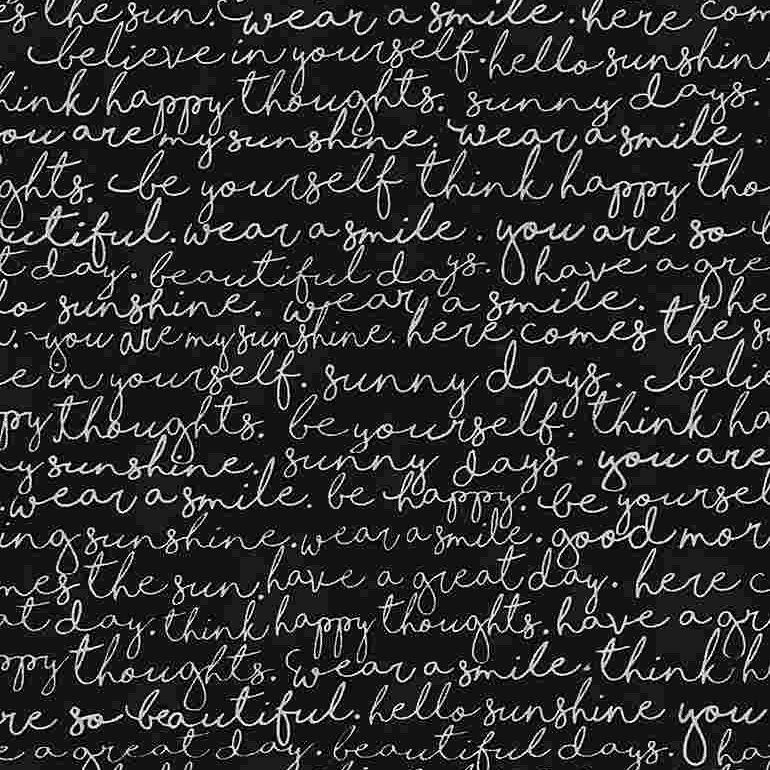 s the sun. wear a smile. here com
believe in yourself. hello sunshin
hink happy thoughts. sunny days.
ou are my sunshine. wear a smile.
ghts. be yourself think happy tho
utiful. wear a smile. you are so b
t day. beautiful days. have a gre
lo sunshine. wear a smile. he
. you are my sunshine. here comes the s
e in yourself. sunny days. belie
py thoughts. be yourself. think ha
y sunshine. sunny days. you are
wear a smile. be happy. be yoursel
ing sunshine. wear a smile. good mor
mes the sun. have a great day. here c
at day. think happy thoughts. have a gr
ppy thoughts. wear a smile. think h
re so beautiful. hello sunshine you
e a great day. beautiful days. ha